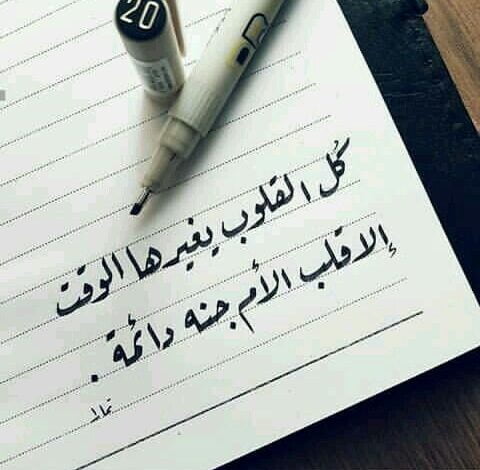 20
كُل القلوب يغيرها الوقت
إلا قلب الأم جنه دائمة .